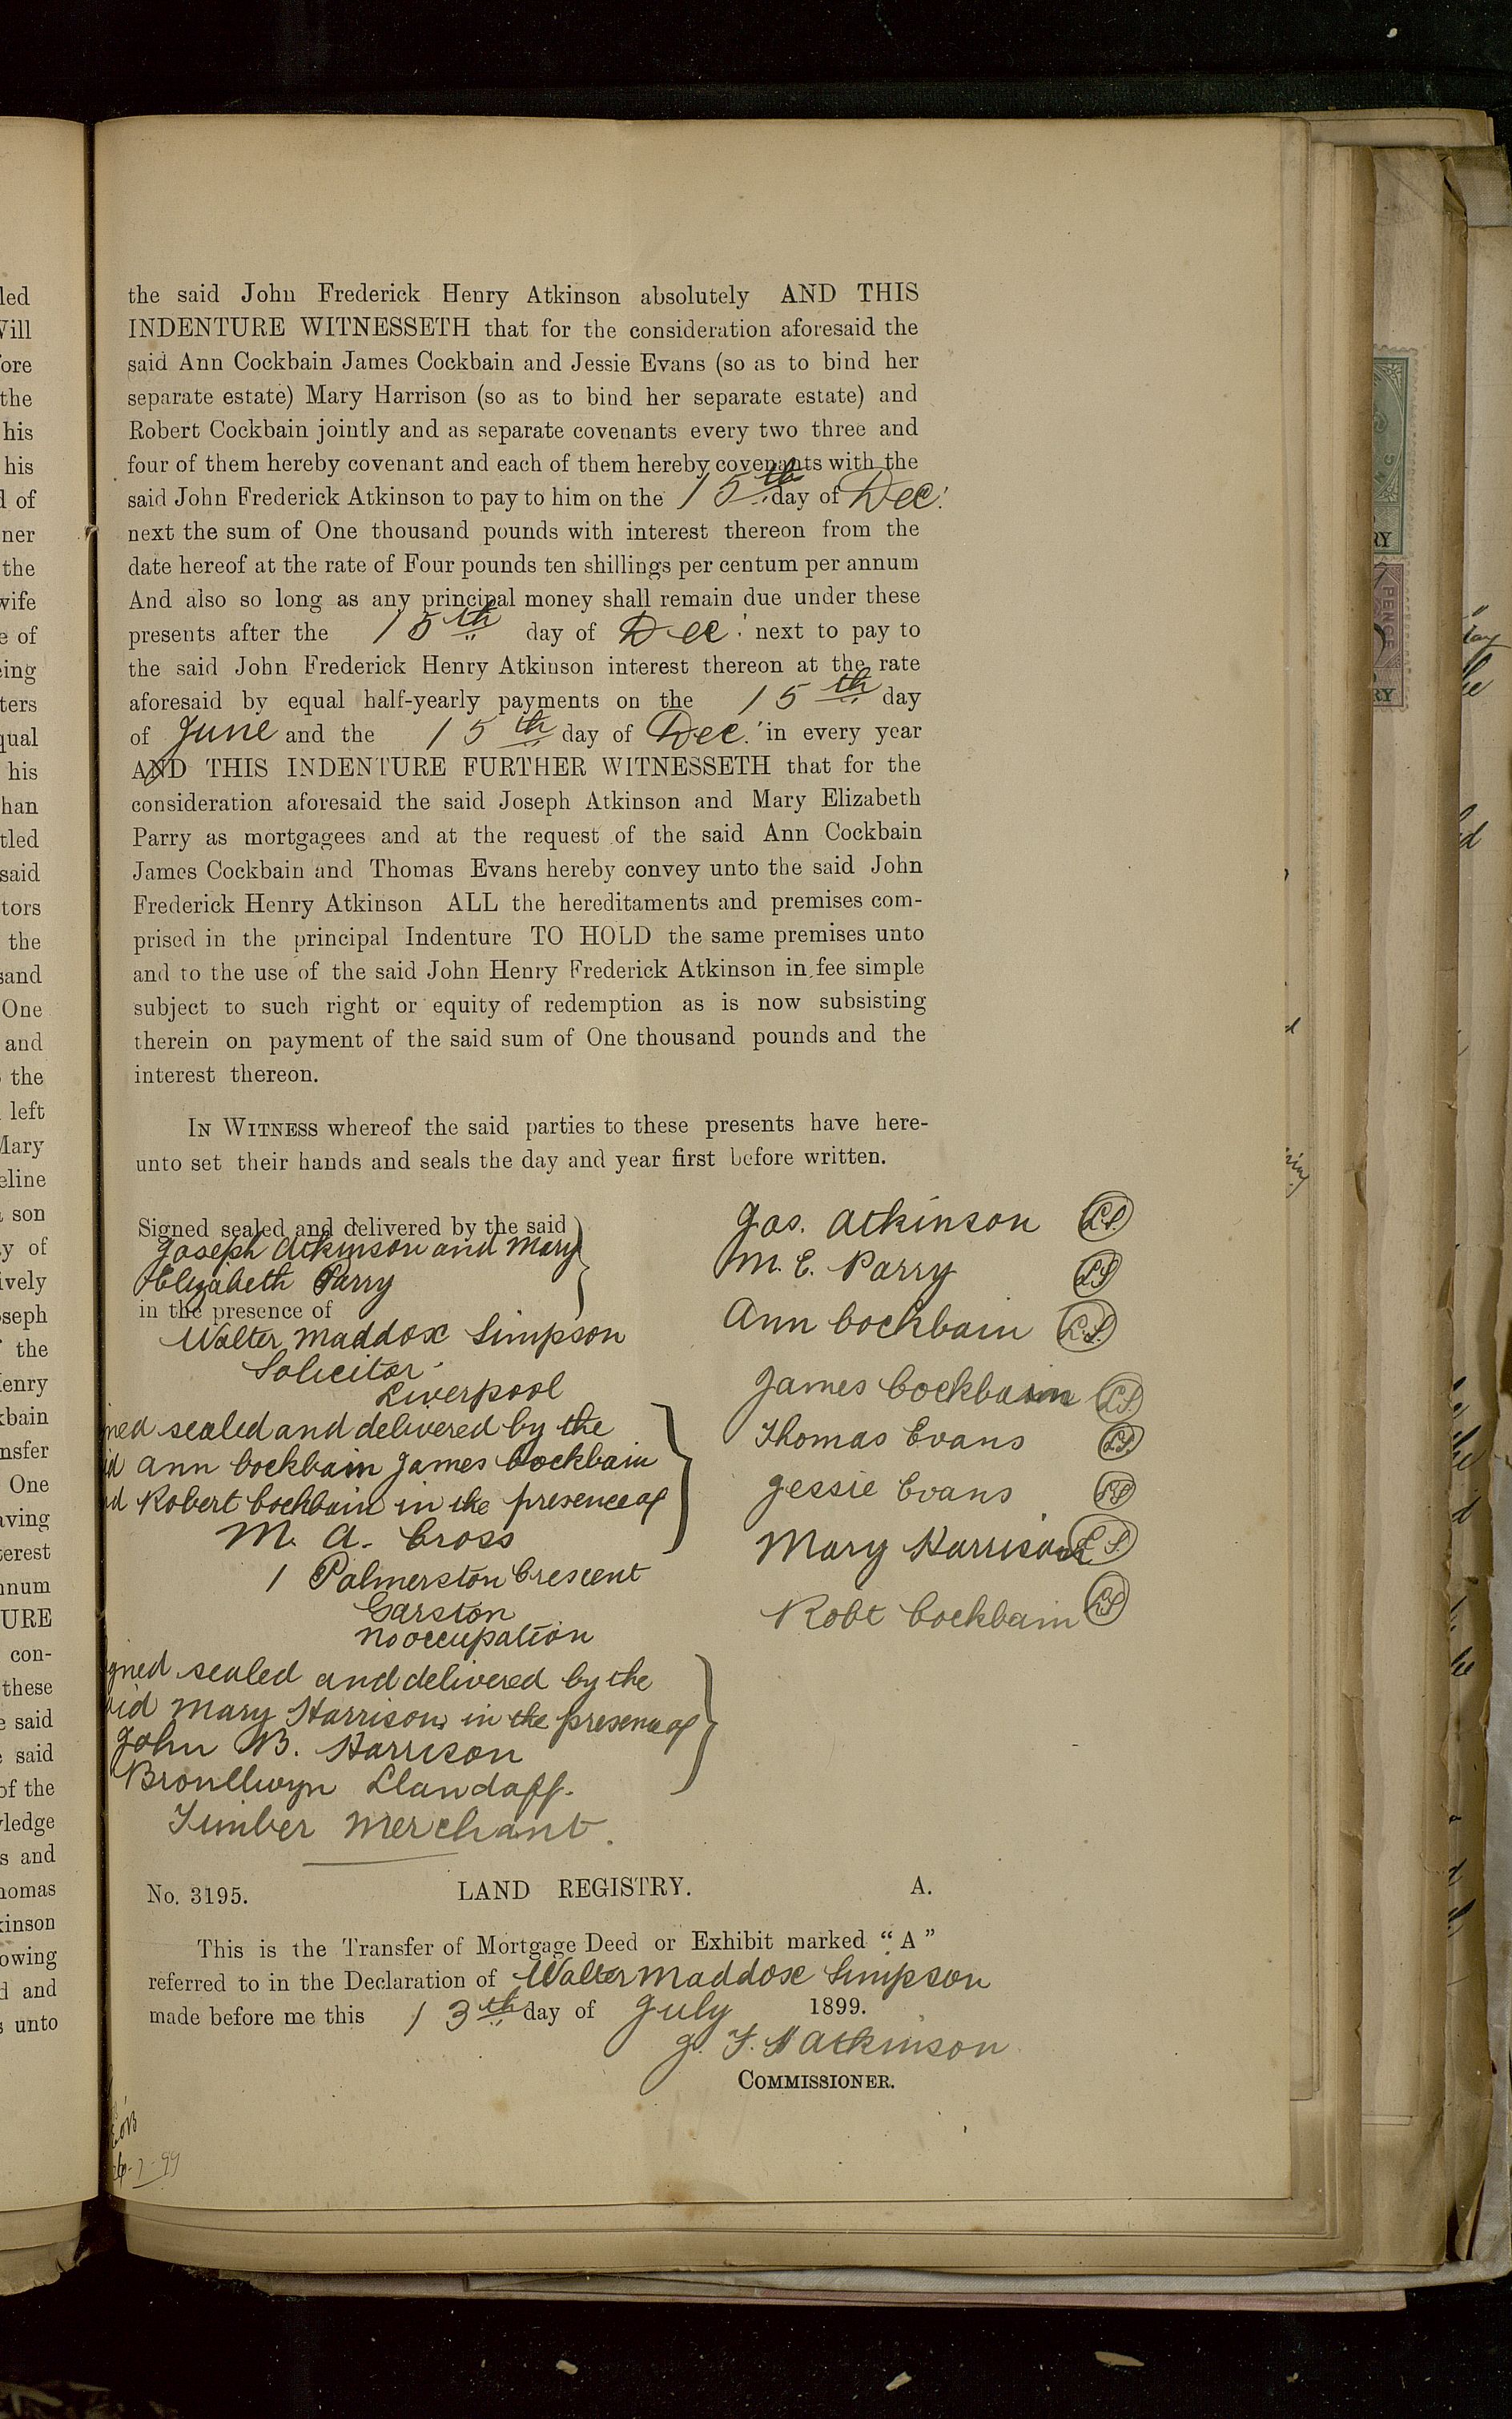 the said John Frederick Henry Atkinson absolutely AND THIS
INDENTURE WITNESSETH that for the consideration aforesaid the
said Ann Cockbain James Cockbain and Jessie Evans (so as to bind her
separate estate) Mary Harrison (so as to bind her separate estate) and
Robert Cockbain jointly and as separate covenants every two three and
four of them hereby covenant and each of them hereby covenants with the
said John Frederick Atkinson to pay to him on the 15th day of Dec:
next the sum of One thousand pounds with interest thereon from the
date hereof at the rate of Four pounds ten shillings per centum per annum
And also so long as any principal money shall remain due under these
presents after the 15th day of Dec: next to pay to
the said John Frederick Henry Atkinson interest thereon at the rate
aforesaid by equal half-yearly payments on the 15th day
of June and the 15th day of Dec: in every year
AND THIS INDENTURE FURTHER WITNESSETH that for the
consideration aforesaid the said Joseph Atkinson and Mary Elizabeth
Parry as mortgagees and at the request of the said Ann Cockbain
James Cockbain and Thomas Evans hereby convey unto the said John
Frederick Henry Atkinson ALL the hereditaments and premises com-
prised in the principal Indenture TO HOLD the same premises unto
and to the use of the said John Henry Frederick Atkinson in fee simple
subject to such right or equity of redemption as is now subsisting
therein on payment of the said sum of One thousand pounds and the
interest thereon.
IN WITNESS whereof the said parties to these presents have here-
unto set their hands and seals the day and year first before written.
Signed sealed and delivered by the said
Joseph Atkinson and Mary
Elizabeth Parry
in the presence of
Walter Maddox Simpson
Solicitor
Liverpool
ned sealed and delivered by the
id Ann Cockbain James Cockbain
nd Robert Cockbain in the presence of
M. A. Cross
1 Palmerston Crescent
Garston
No occupation
gned sealed and delivered by the
aid Mary Harrison in the presence of
John B. Harrison
Bronllwyn Llandaff.
Timber Merchant.
Jos. Atkinson LS
M. E. Parry LS
Ann Cockbain L.S.
James Cockbain LS
Thomas Evans LS
Jessie Evans LS
Mary Harrison LS
Robt Cockbain LS
No. 3195. LAND REGISTRY. A.
This is the Transfer of Mortgage Deed or Exhibit marked "A"
referred to in the Declaration of Walter Maddox Simpson
made before me this 13th day of July 1899.
J. F. H Atkinson
COMMISSIONER.